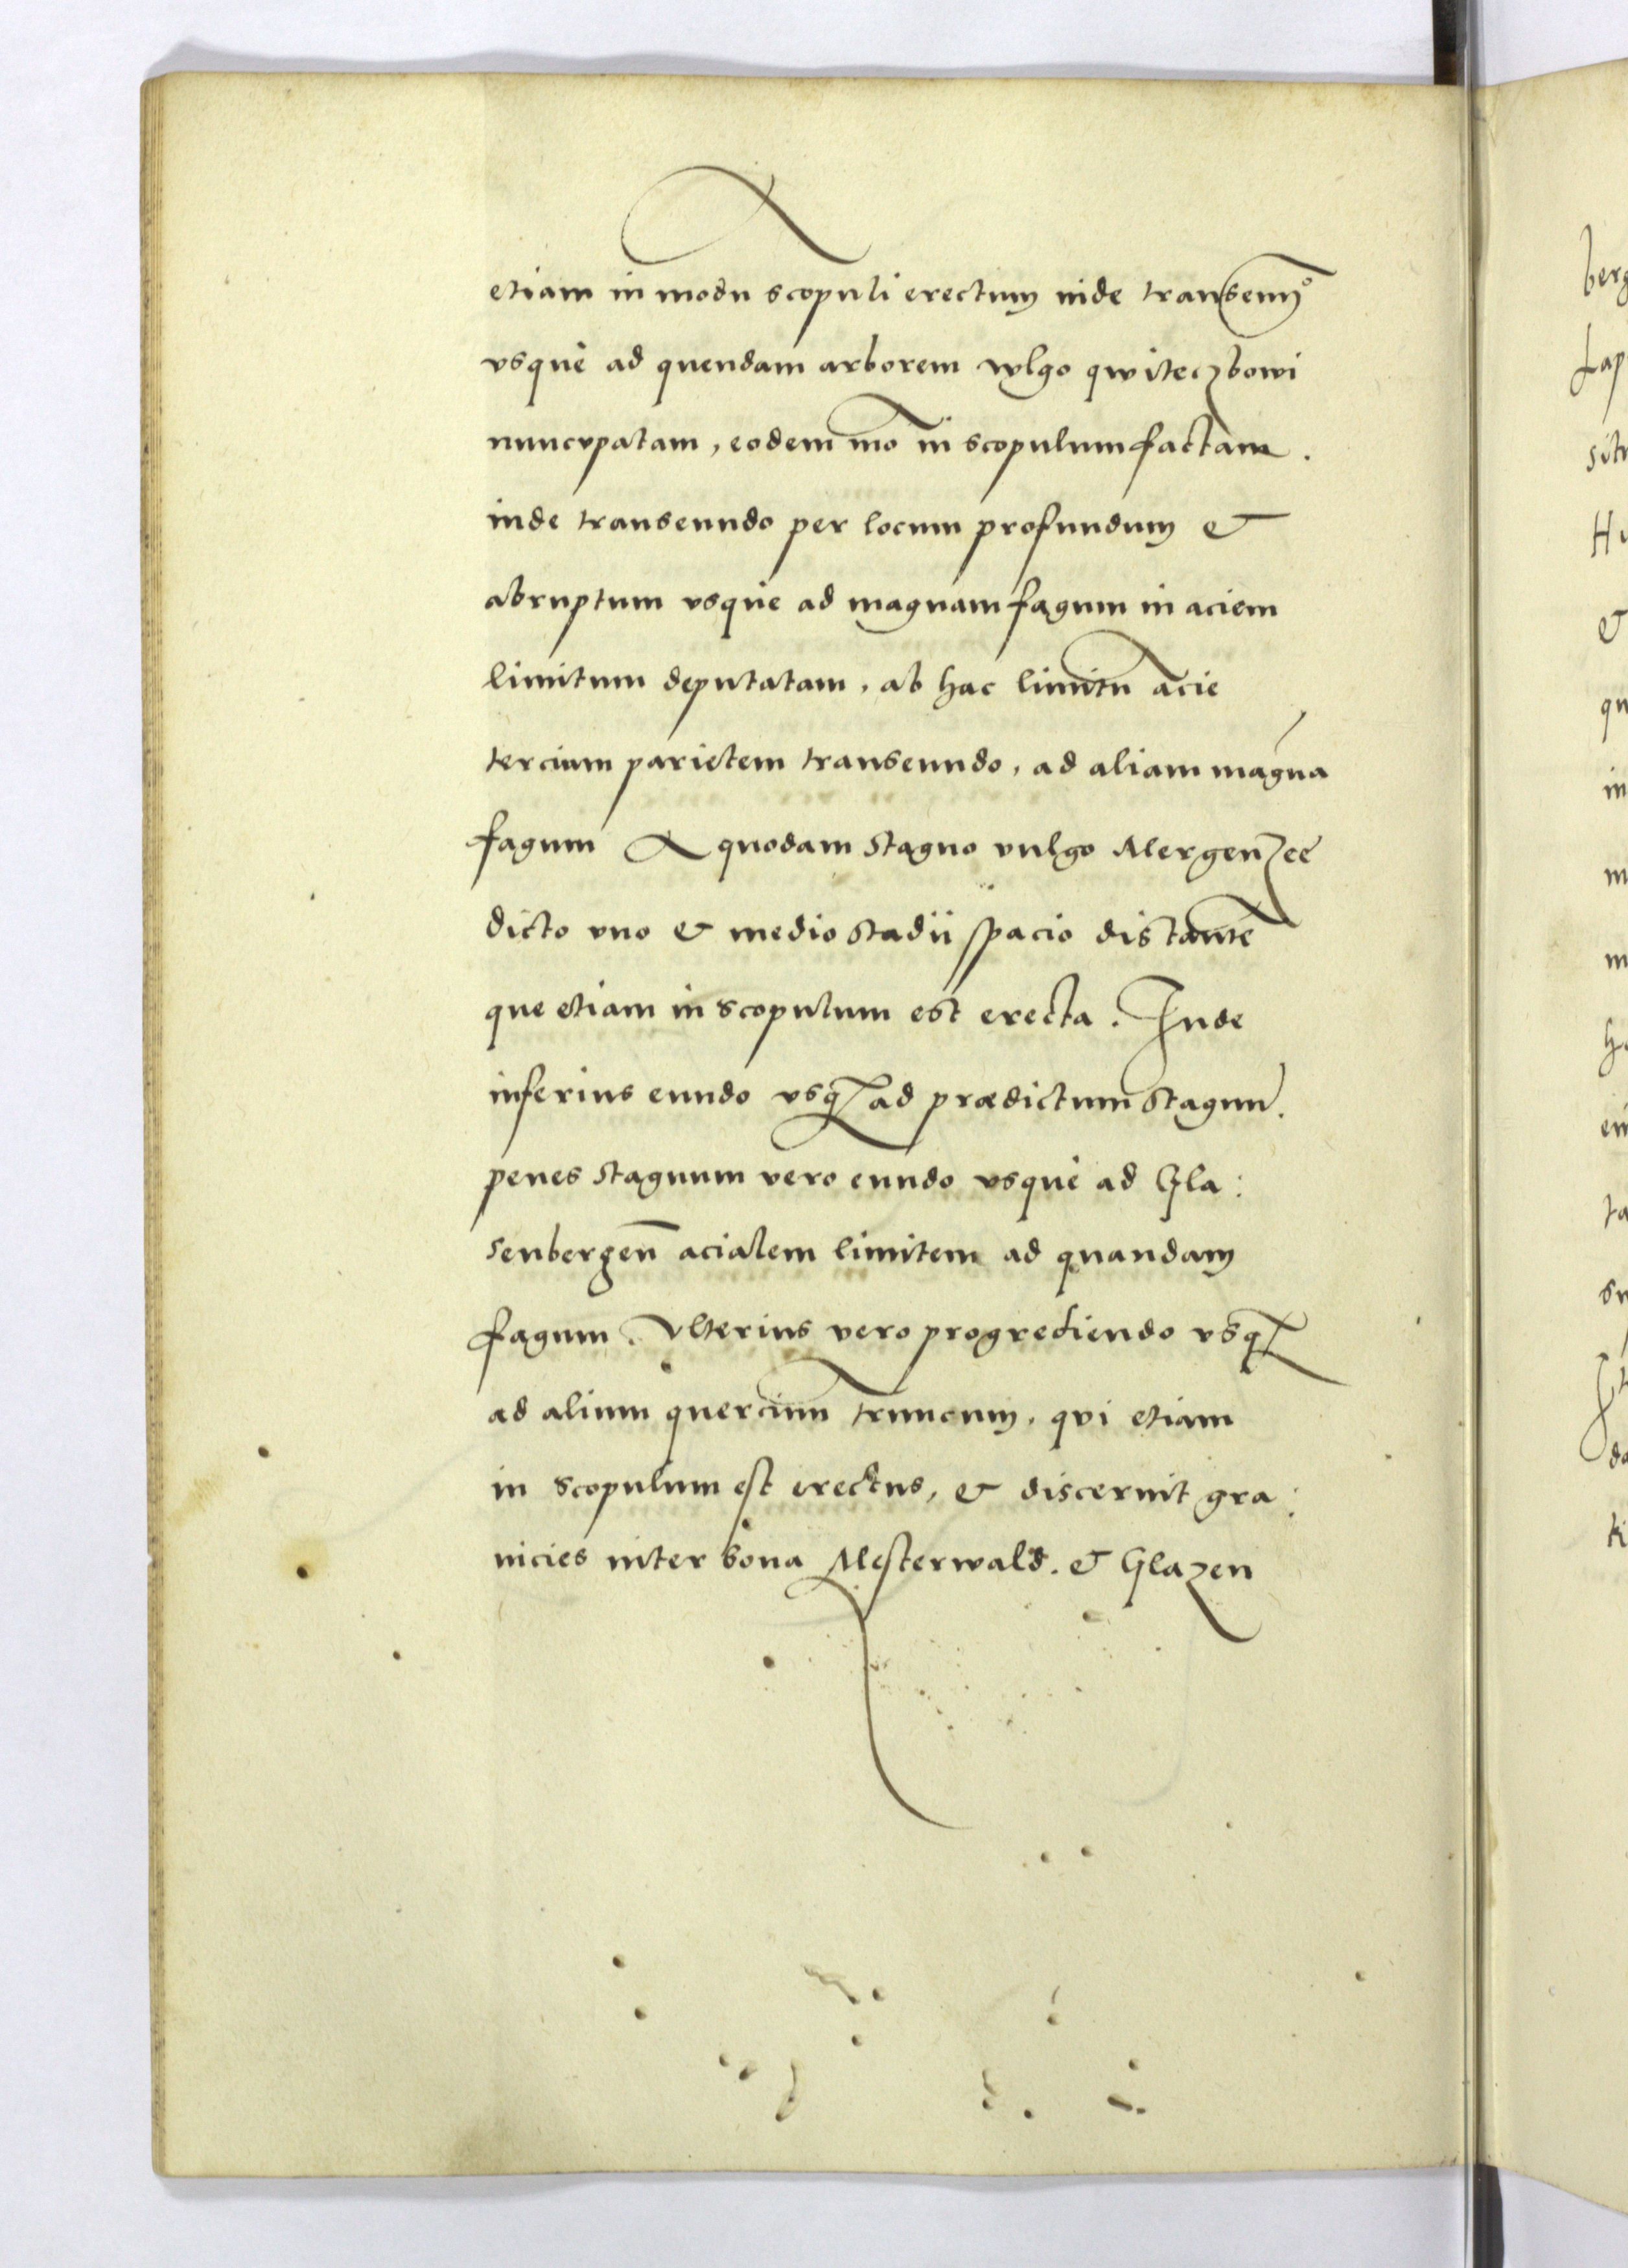 etiam in modū scopuli erectum inde transeun̄º
vsque ad quendam arborem wlgo qwiteczbowi
nuncvpatam, eodem mō in scopulum factam.
inde transeundo per locum profundum &
abruptum vsque ad magnam fagum in aciem
limitum deputatam, ab hac limitū acie
tercium parietem transeundo, ad aliam magnā
fagum A quodam stagno vulgo Mergenzee
dicto vno & medio stadii spacio distantē
que etiam in scopulum est erecta. Inde
inferius eundo vsqꝫ ad prædictum stagnū.
penes stagnum vero eundo vsque ad Gla:
senbergeñ acialem limitem ad quandam
fagum. Vlterius vero progrediendo vsqꝫ
ad alium quercinū truncum, qvi etiam
in scopulum est erectus, & discernit gra:
nicies inter bona Mesterwald. & Glazen
berg
Lap
H
&
qu
in
m
m
ta